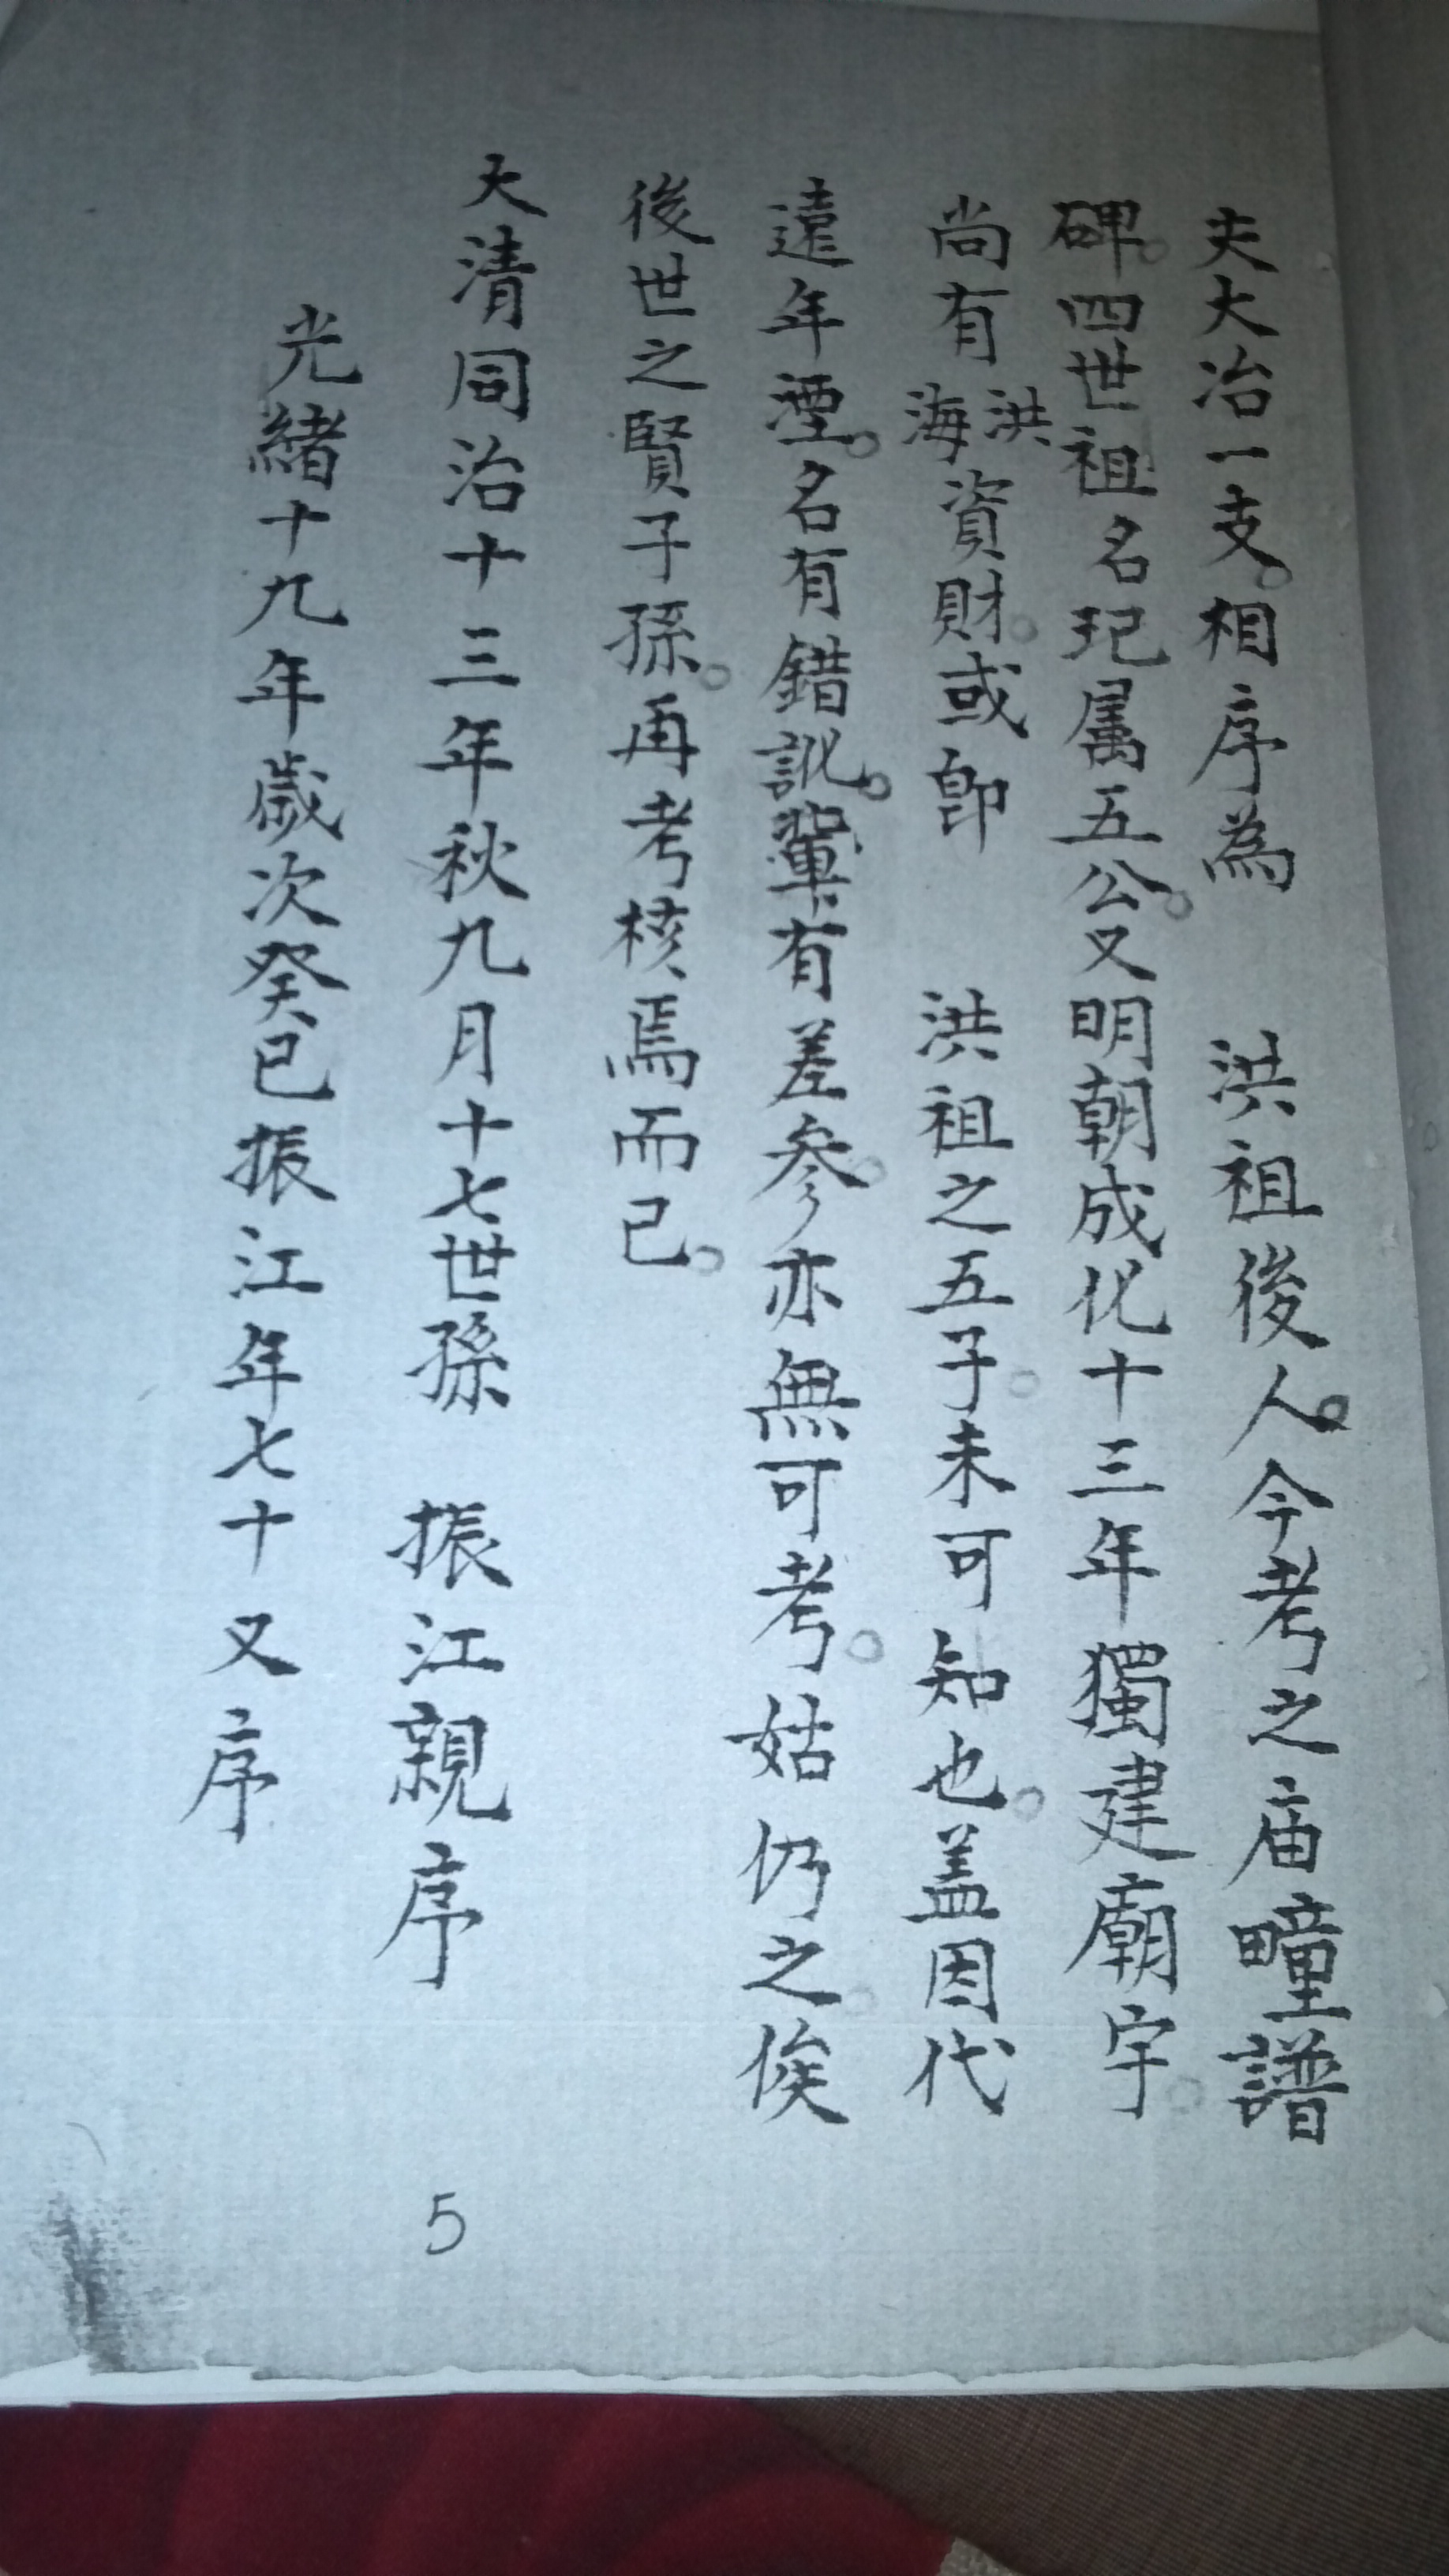 夫大冶一支。相序為　洪祖後人。今考之庙疃譜
碑。四世祖名玘属五公。又明朝成化十三年獨建廟宇。
尚有洪海資財。或即　洪祖之五子。未可知也。盖因代
遠年湮。名有錯訛。輩有差參。亦無可考。姑仍之。俟
後世之賢子孫。再考核焉而己。
大清同治十三年秋九月十七世孫　振江親序
光緒十九年歲次癸巳振江年七十又序
5